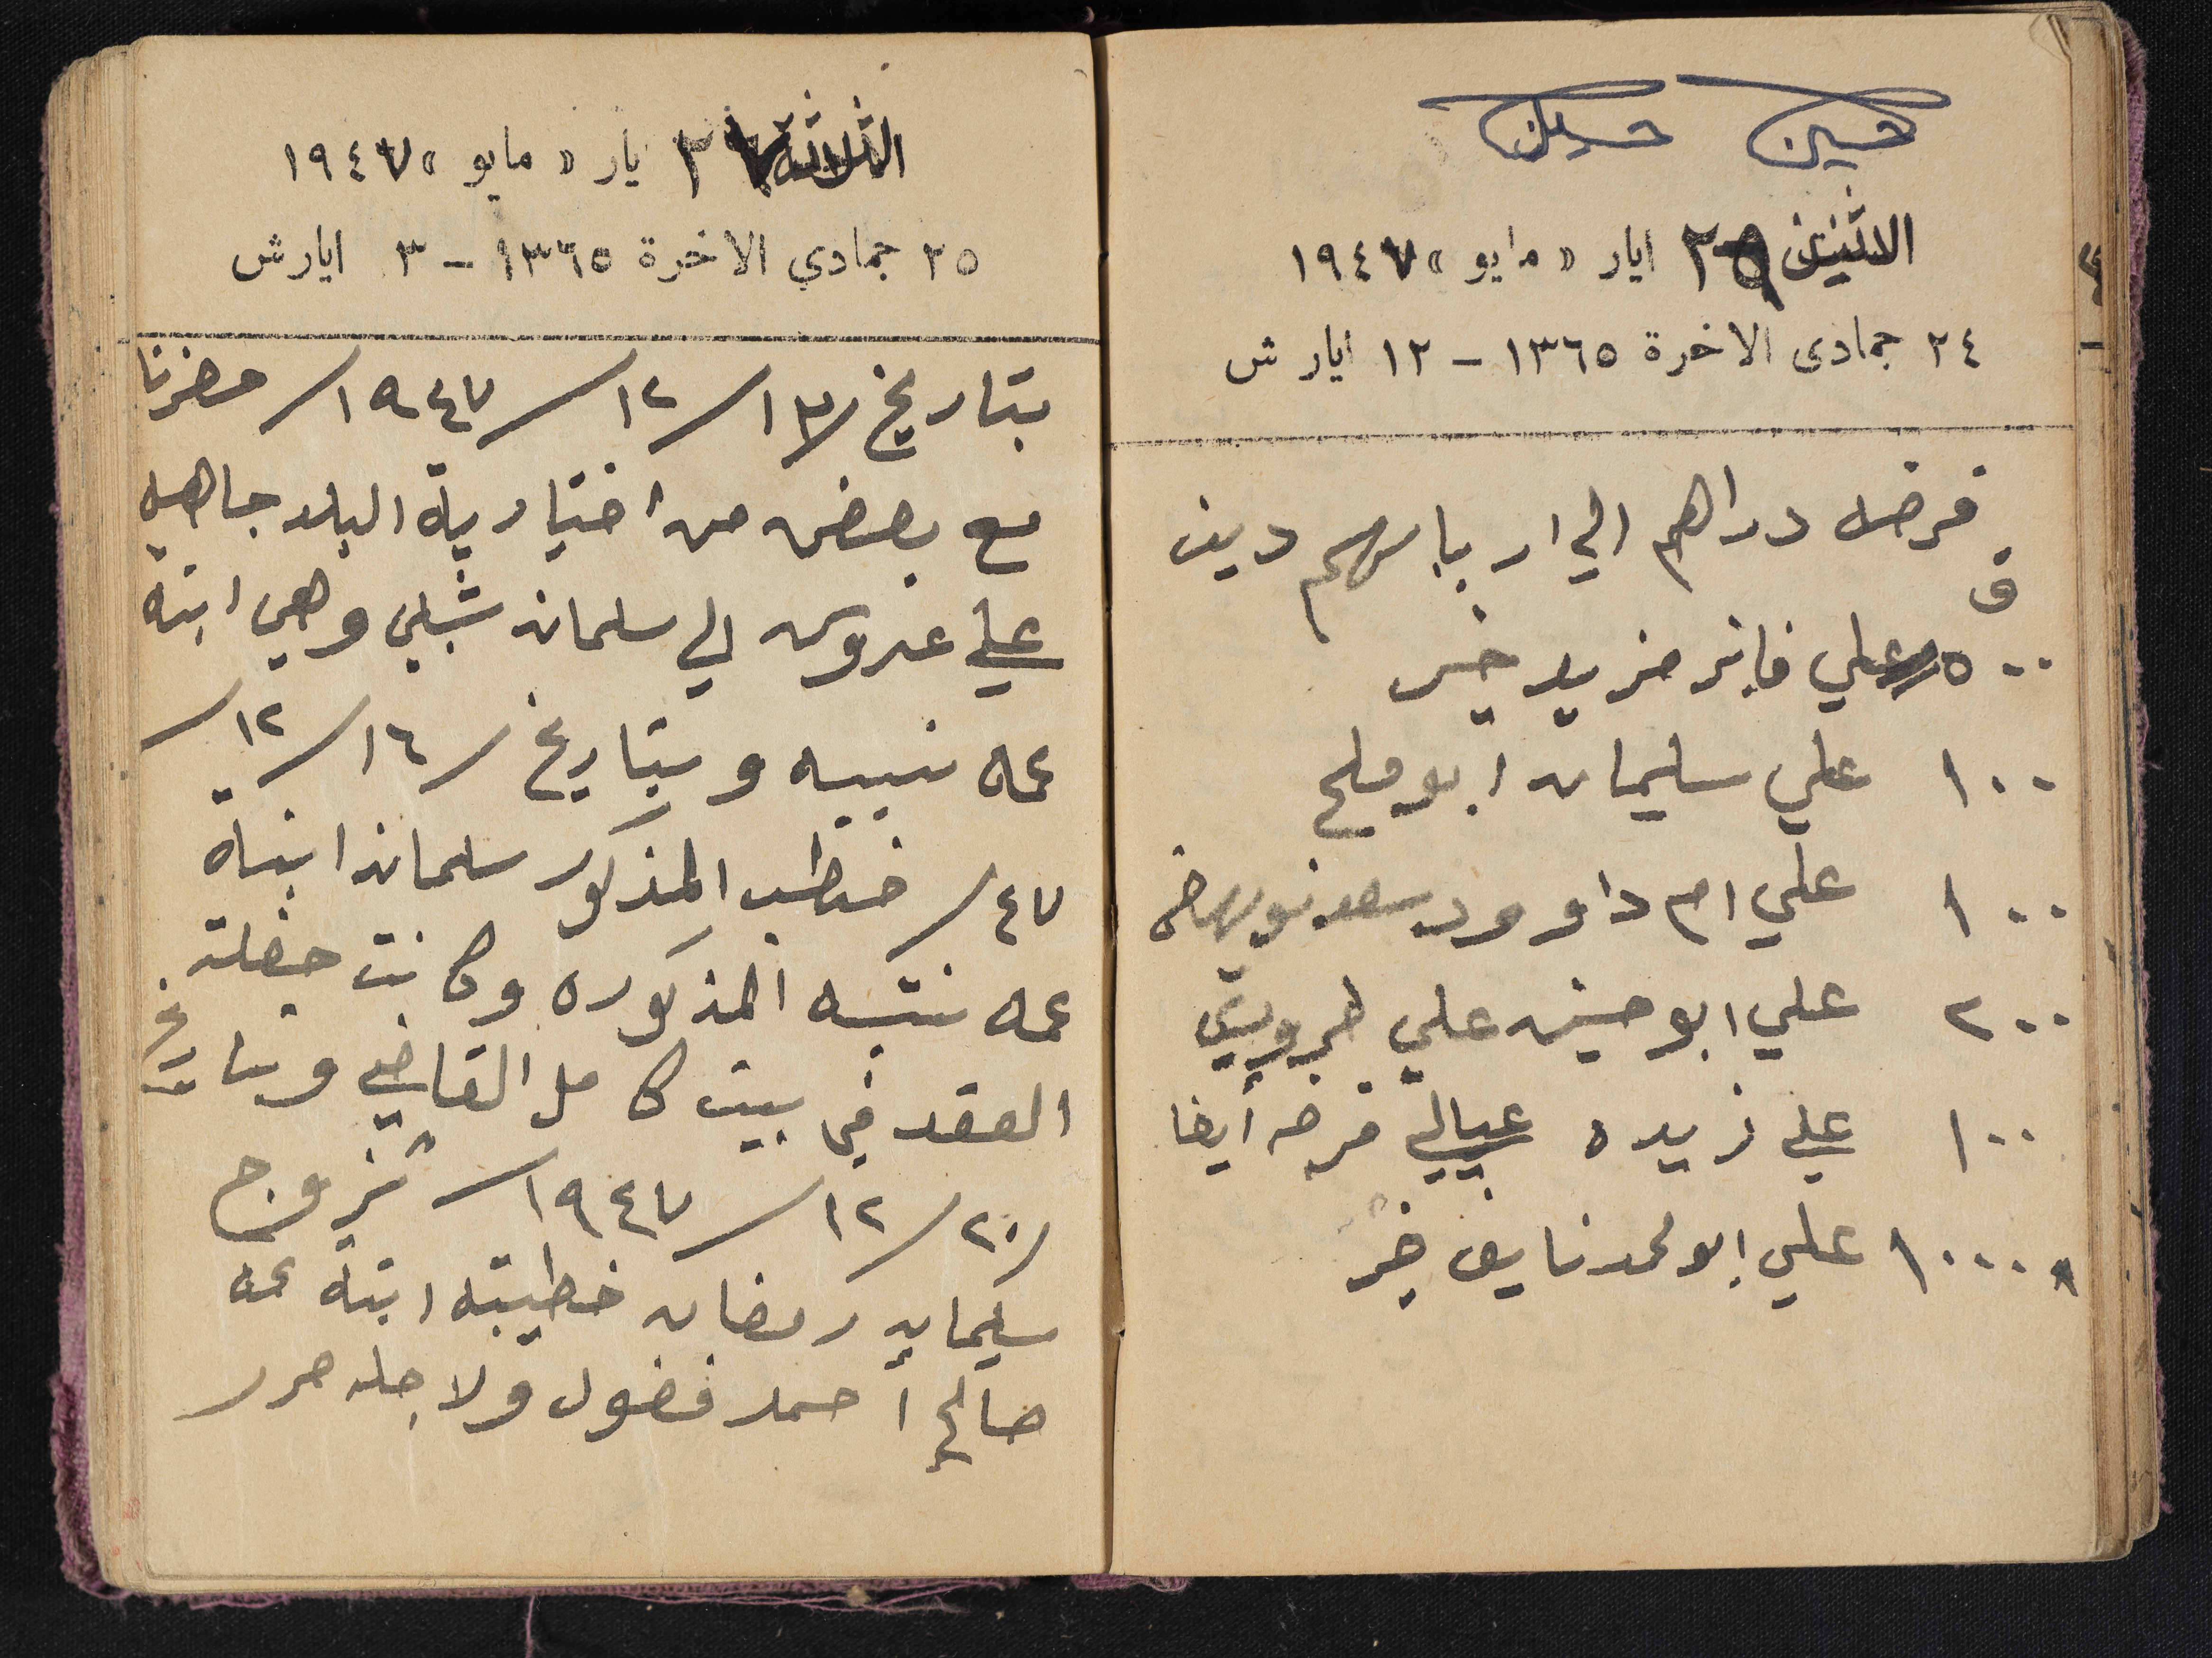 حسين حسين
الاثنين ٢٦ ايار « مايو » ١٩٤٧
٢٤ جمادى الاخرة ١٣٦٥ - ١٢ ايار ش
قرضه دراهم الي اربابهم دين
ق
٥٠٠ علي فايز مزيد خير
١٠٠ علي سليمان ابو ملح
١٠٠ علي ام داوود سعد نويهض
٢٠٠ علي ابو حسين علي
١٠٠ علي زيده عيالي قرضه أيضا
١٠٠٠ علي ابو محمد نايف خير
الثلاثاء ٢٧ يار « مايو » ١٩٤٧
٢٥ جمادي الاخرة ١٣٦٥ - ٣ ايار ش
بتاريخ ١٣/ ١٢/ ١٩٤٧/ حضرنا
مع بعض من اختيارية البلد جاهه
علي عروس الي سلمان شبلي وهي ابنة
عمه نسيبه وبتاريخ /١٦/ ١٢/
٤٧/ خطب المذكور سلمان ابنة
عمه نسيبه المذكوره وكانت حفلة
العقد في بيت كامل القاضي وبتاريخ
/٢٠/ ١٢/ ١٩٤٧/ تزوج
سليمان رمضان خطيبته ابنة عمه
صالح احمد فضول ولاجله حرر